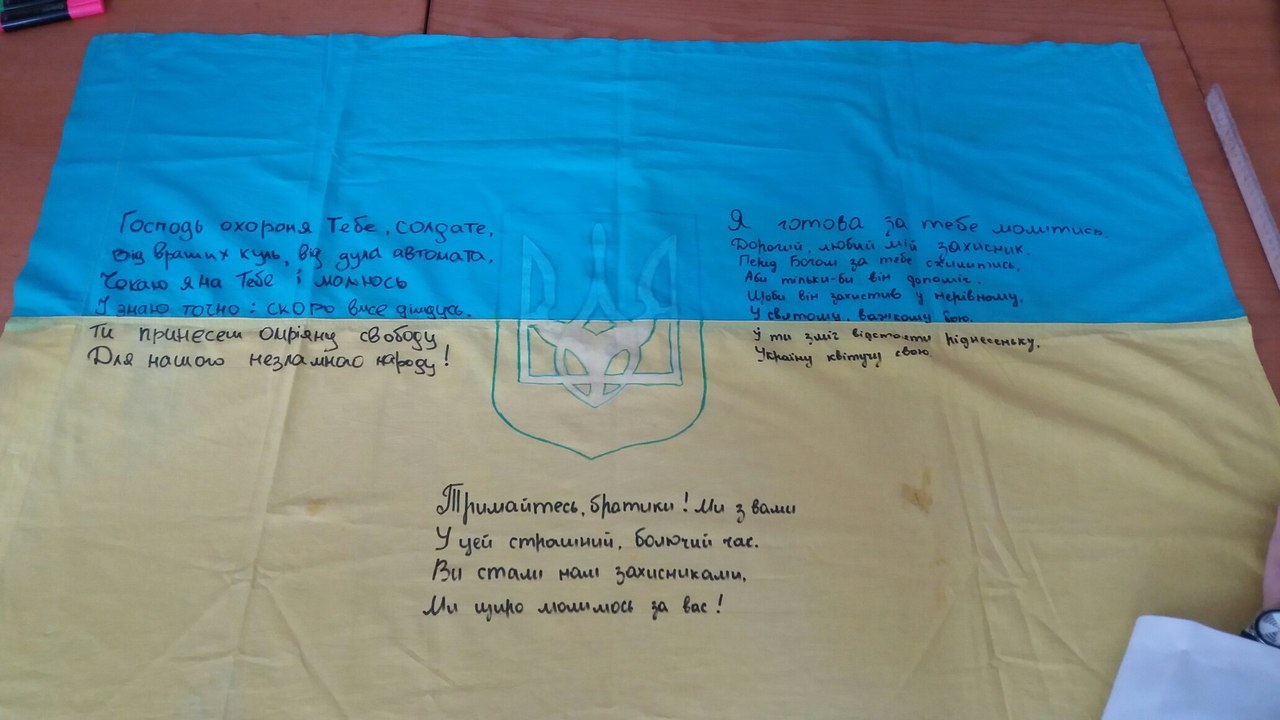 Господь охороня Тебе, солдате,
Від вражих куль, від дула автомата.
Чекаю я на Тебе і молюсь
І знаю точно: скоро вже діждусь.
Ти принесеш омріяну свободу
Для нашого незламного народу!
Я готова за тебе молитись.
Дорогий, любий мій захисник.
Перед Богом за тебе схилитись,
Аби тільки-би він допоміг.
Щоби він захистив у нерівному,
У святому, важкому бою.
Й ти зміг відстояти ріднесеньку,
Україну квітучу свою
Тримайтесь, братики! Ми з вами
У цей страшний, болючий час.
Ви стали наші захисниками,
Ми щиро молимось за вас!